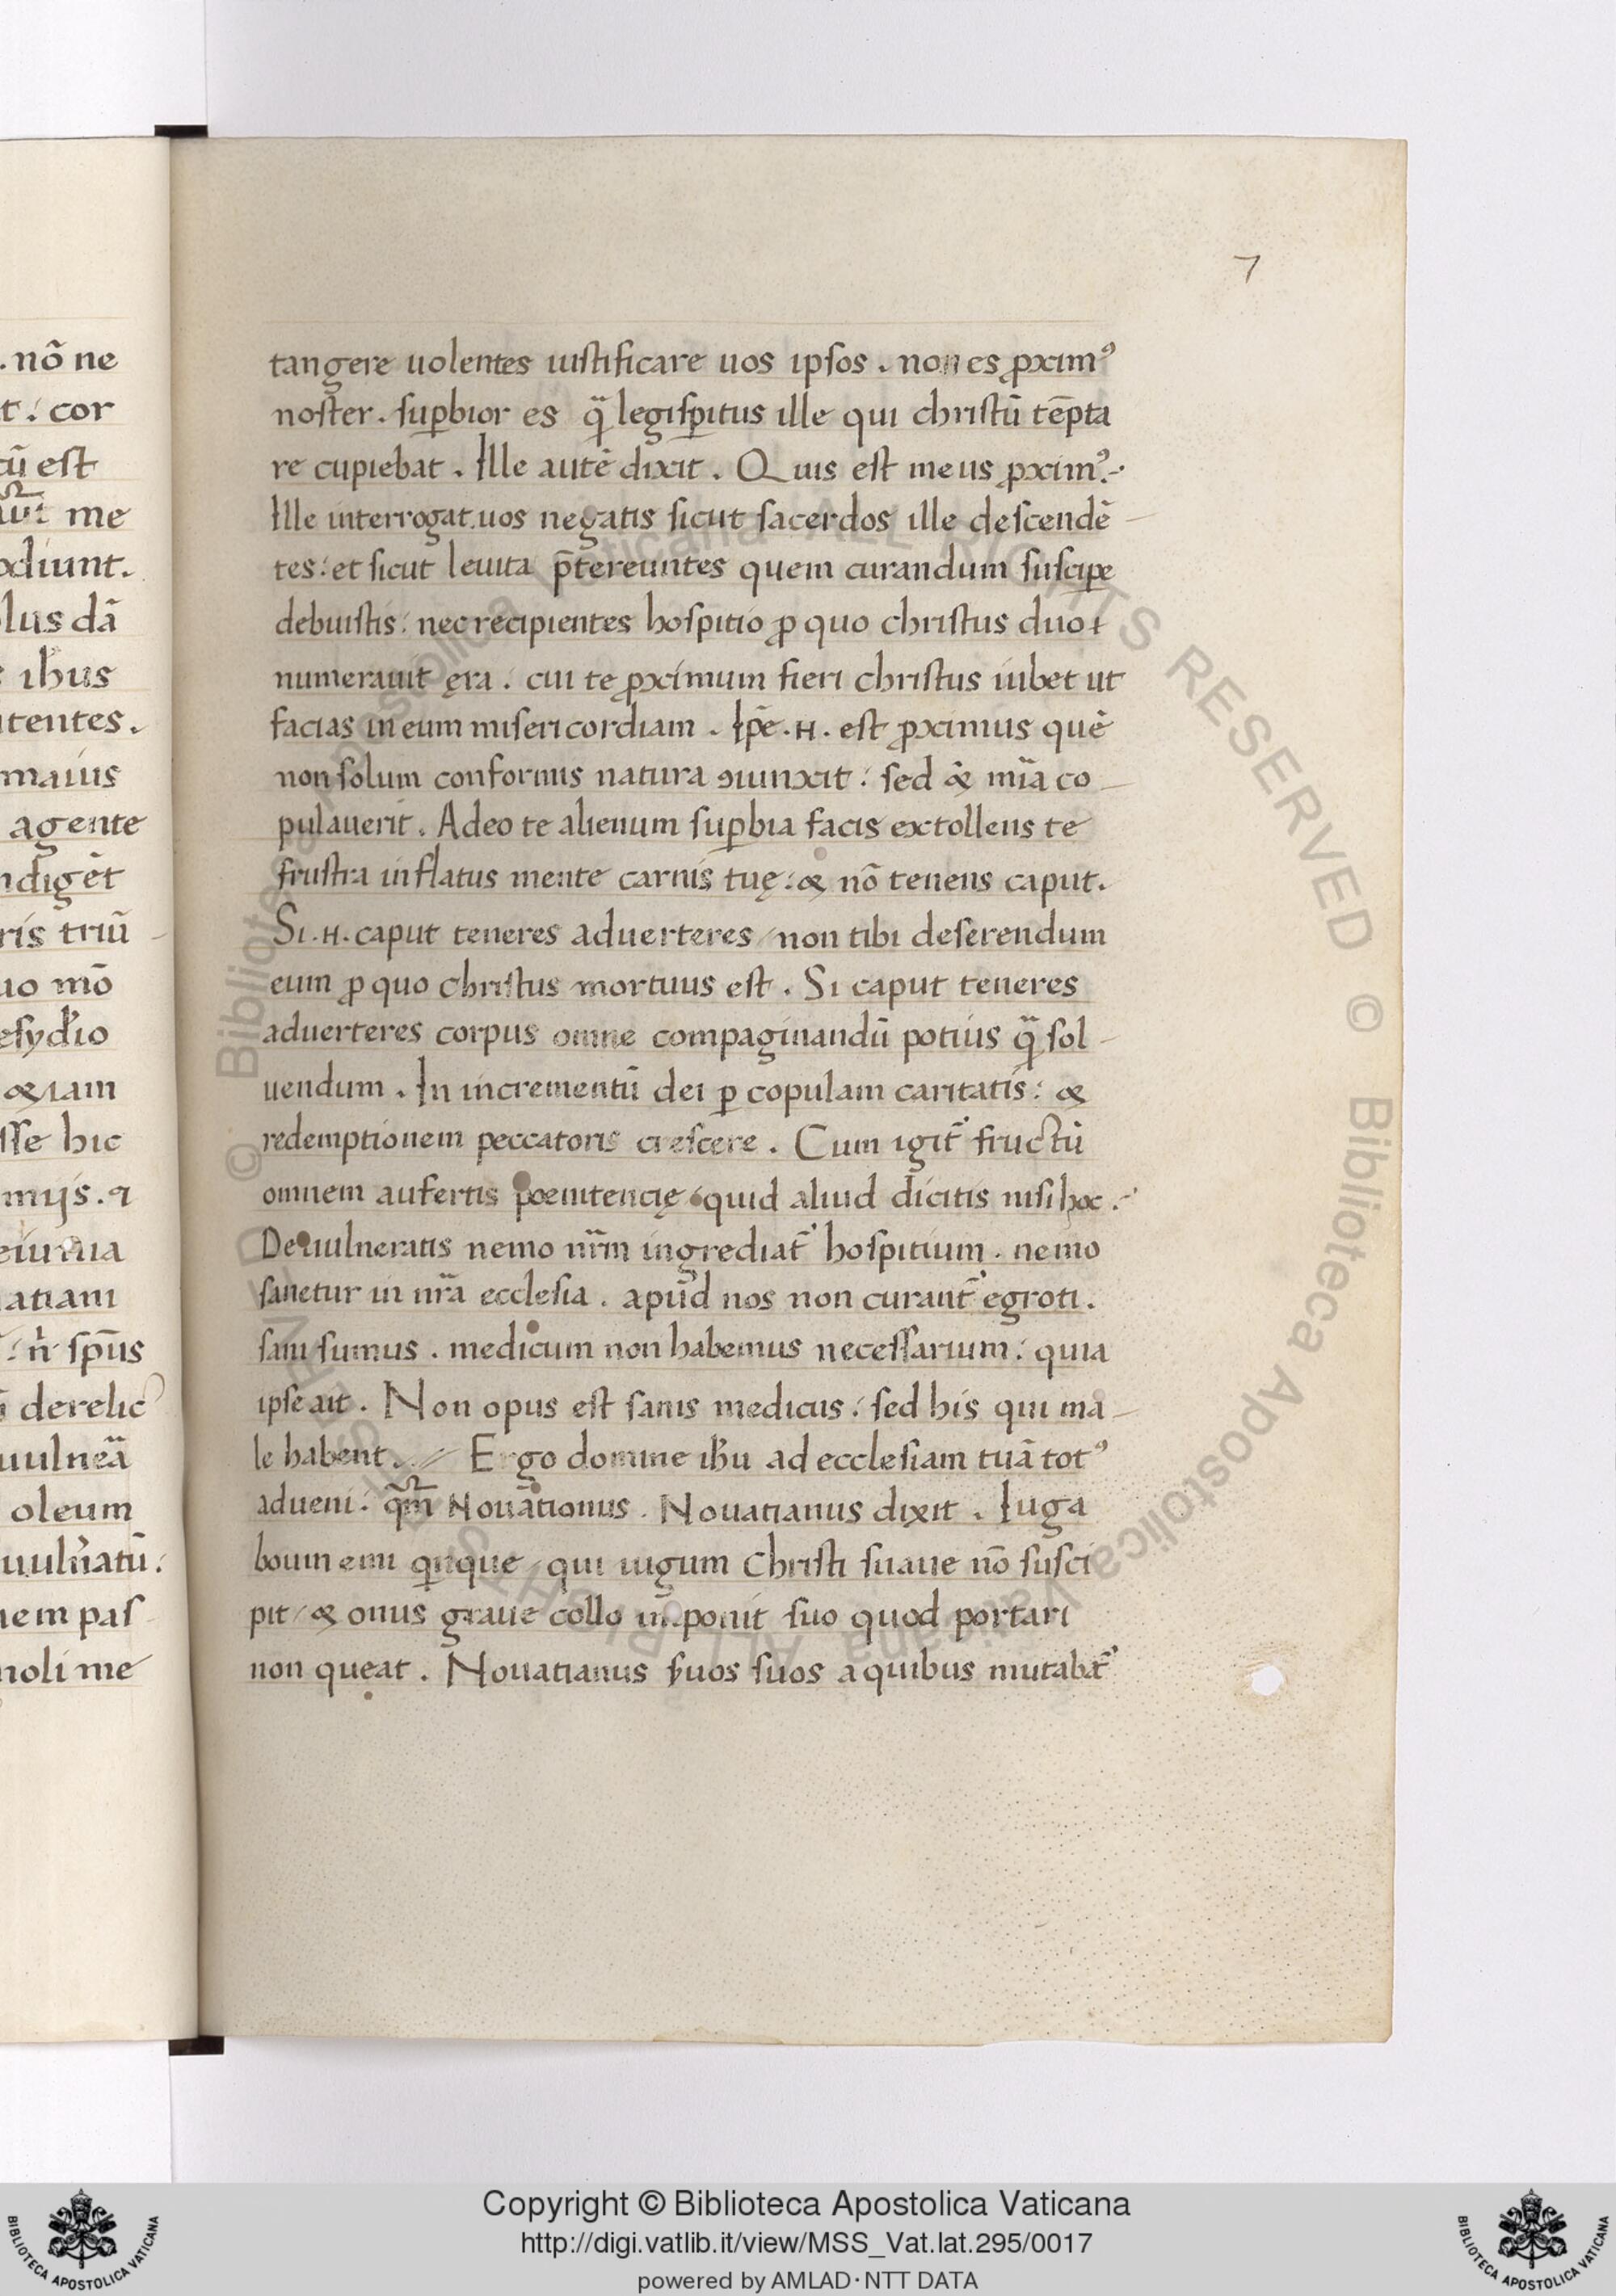 7
. nō ne
t : cor
cū est
me
odiunt.
lus dā
s ih̄us
itentes.
maius
agente
ndigēt
ris triū
uo mō
esyd̄io
& iam
sse hic
mijs . q
eiunia
atiani
: n̄ sp̄us
derelic
uulnēa
oleum
uuln̄atū:
nem pas
noli me
tangere uolentes iustificare uos ipsos . non es ꝓxim⁹
noster . suꝑbior es q̄ legisꝑitus ille qui christū tēpta
re cupiebat . Ille autē dixit . Quis est meus ꝓxim⁹.
Ille interrogat . uos negatis sicut sacerdos ille descendē
tes : et sicut leuita p̄tereuntes quem curandum susciꝑe
debuistis : nec recipientes hospitio ꝓ quo christus duo
numerauit ęra . cui te ꝓximum fieri christus iubet ut
facias in eum misericordiam . Ip̄e . H . est ꝓximus quē
non solum conformis natura ꝯiunxit : sed & mīa co
pulauerit . Adeo te alienum suꝑbia facis extollens te
frustra inflatus mente carnis tuę : & nō tenens caput .
Si . H . caput teneres aduerteres / non tibi deserendum
eum ꝓ quo christus mortuus est . Si caput teneres
aduerteres corpus omne compaginandū potius q̄ sol
uendum . In incrementū dei ꝑ copulam caritatis : &
redemptionem peccatoris crescere . Cum igit᷑ fructū
omnem aufertis poenitencię quid aliud dicitis nisi hoc .
De uulneratis nemo nr̄m ingrediat᷑ hospitium . nemo
sanetur in nr̄a ecclesia . apud nos non curant᷑ egroti .
sani sumus . medicum non habemus necessarium : quia
ipse ait . Non opus est sanis medicus : sed his qui ma
le habent . Ergo domine ih̄u ad ecclesiam tuā tot⁹
adueni : qm̄ Nouationus . Nouatianus dixit . Iuga
boum emi quinque / qui iugum Christi suaue nō susci
pit / & onus graue collo imponit suo quod portari
non queat . Nouatianus s̄uos suos a quibus mutabat᷑
© Biblioteca Apostolica Vaticana ALL RIGHTS RESERVED © Biblioteca Apostolica Vaticana ALL RIGHTS RESERVED
Copyright © Biblioteca Apostolica Vaticana
http://digi.vatlib.it/view/MSS_Vat.lat.295/0017
powered by AMLAD·NTT DATA
BIBLIOTECA APOSTOLICA VATICANA
BIBLIOTECA APOSTOLICA VATICANA